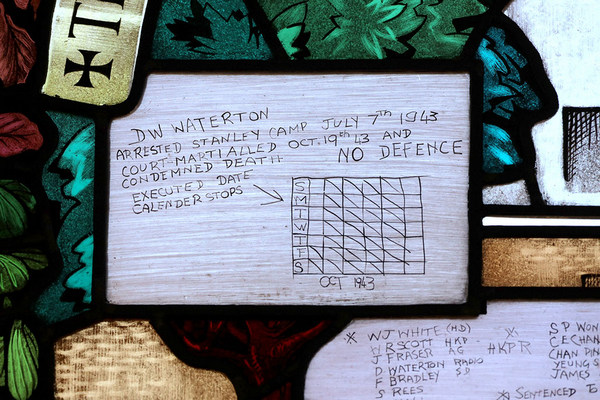 TI
DW WATERTON
ARRESTED STANLEY CAMP JULY 7TH 1943
COURT MARTIALLED OCT. 19TH 43 AND
CONDEMNED DEATH NO DEFENCE
EXECUTED DATE
CALENDER STOPS
S
M
T
W
T
F
S
OCT 1943
WJ WHITE (H.D)
W R SCOTT HKP
J FRASER AG
D WATERTON RADIO
F BRADLEY S.D
S REES
HKPR
S P WON
C E CHAN
CHAN PIN
YEUNG S
JAMES
SENTENCED TO